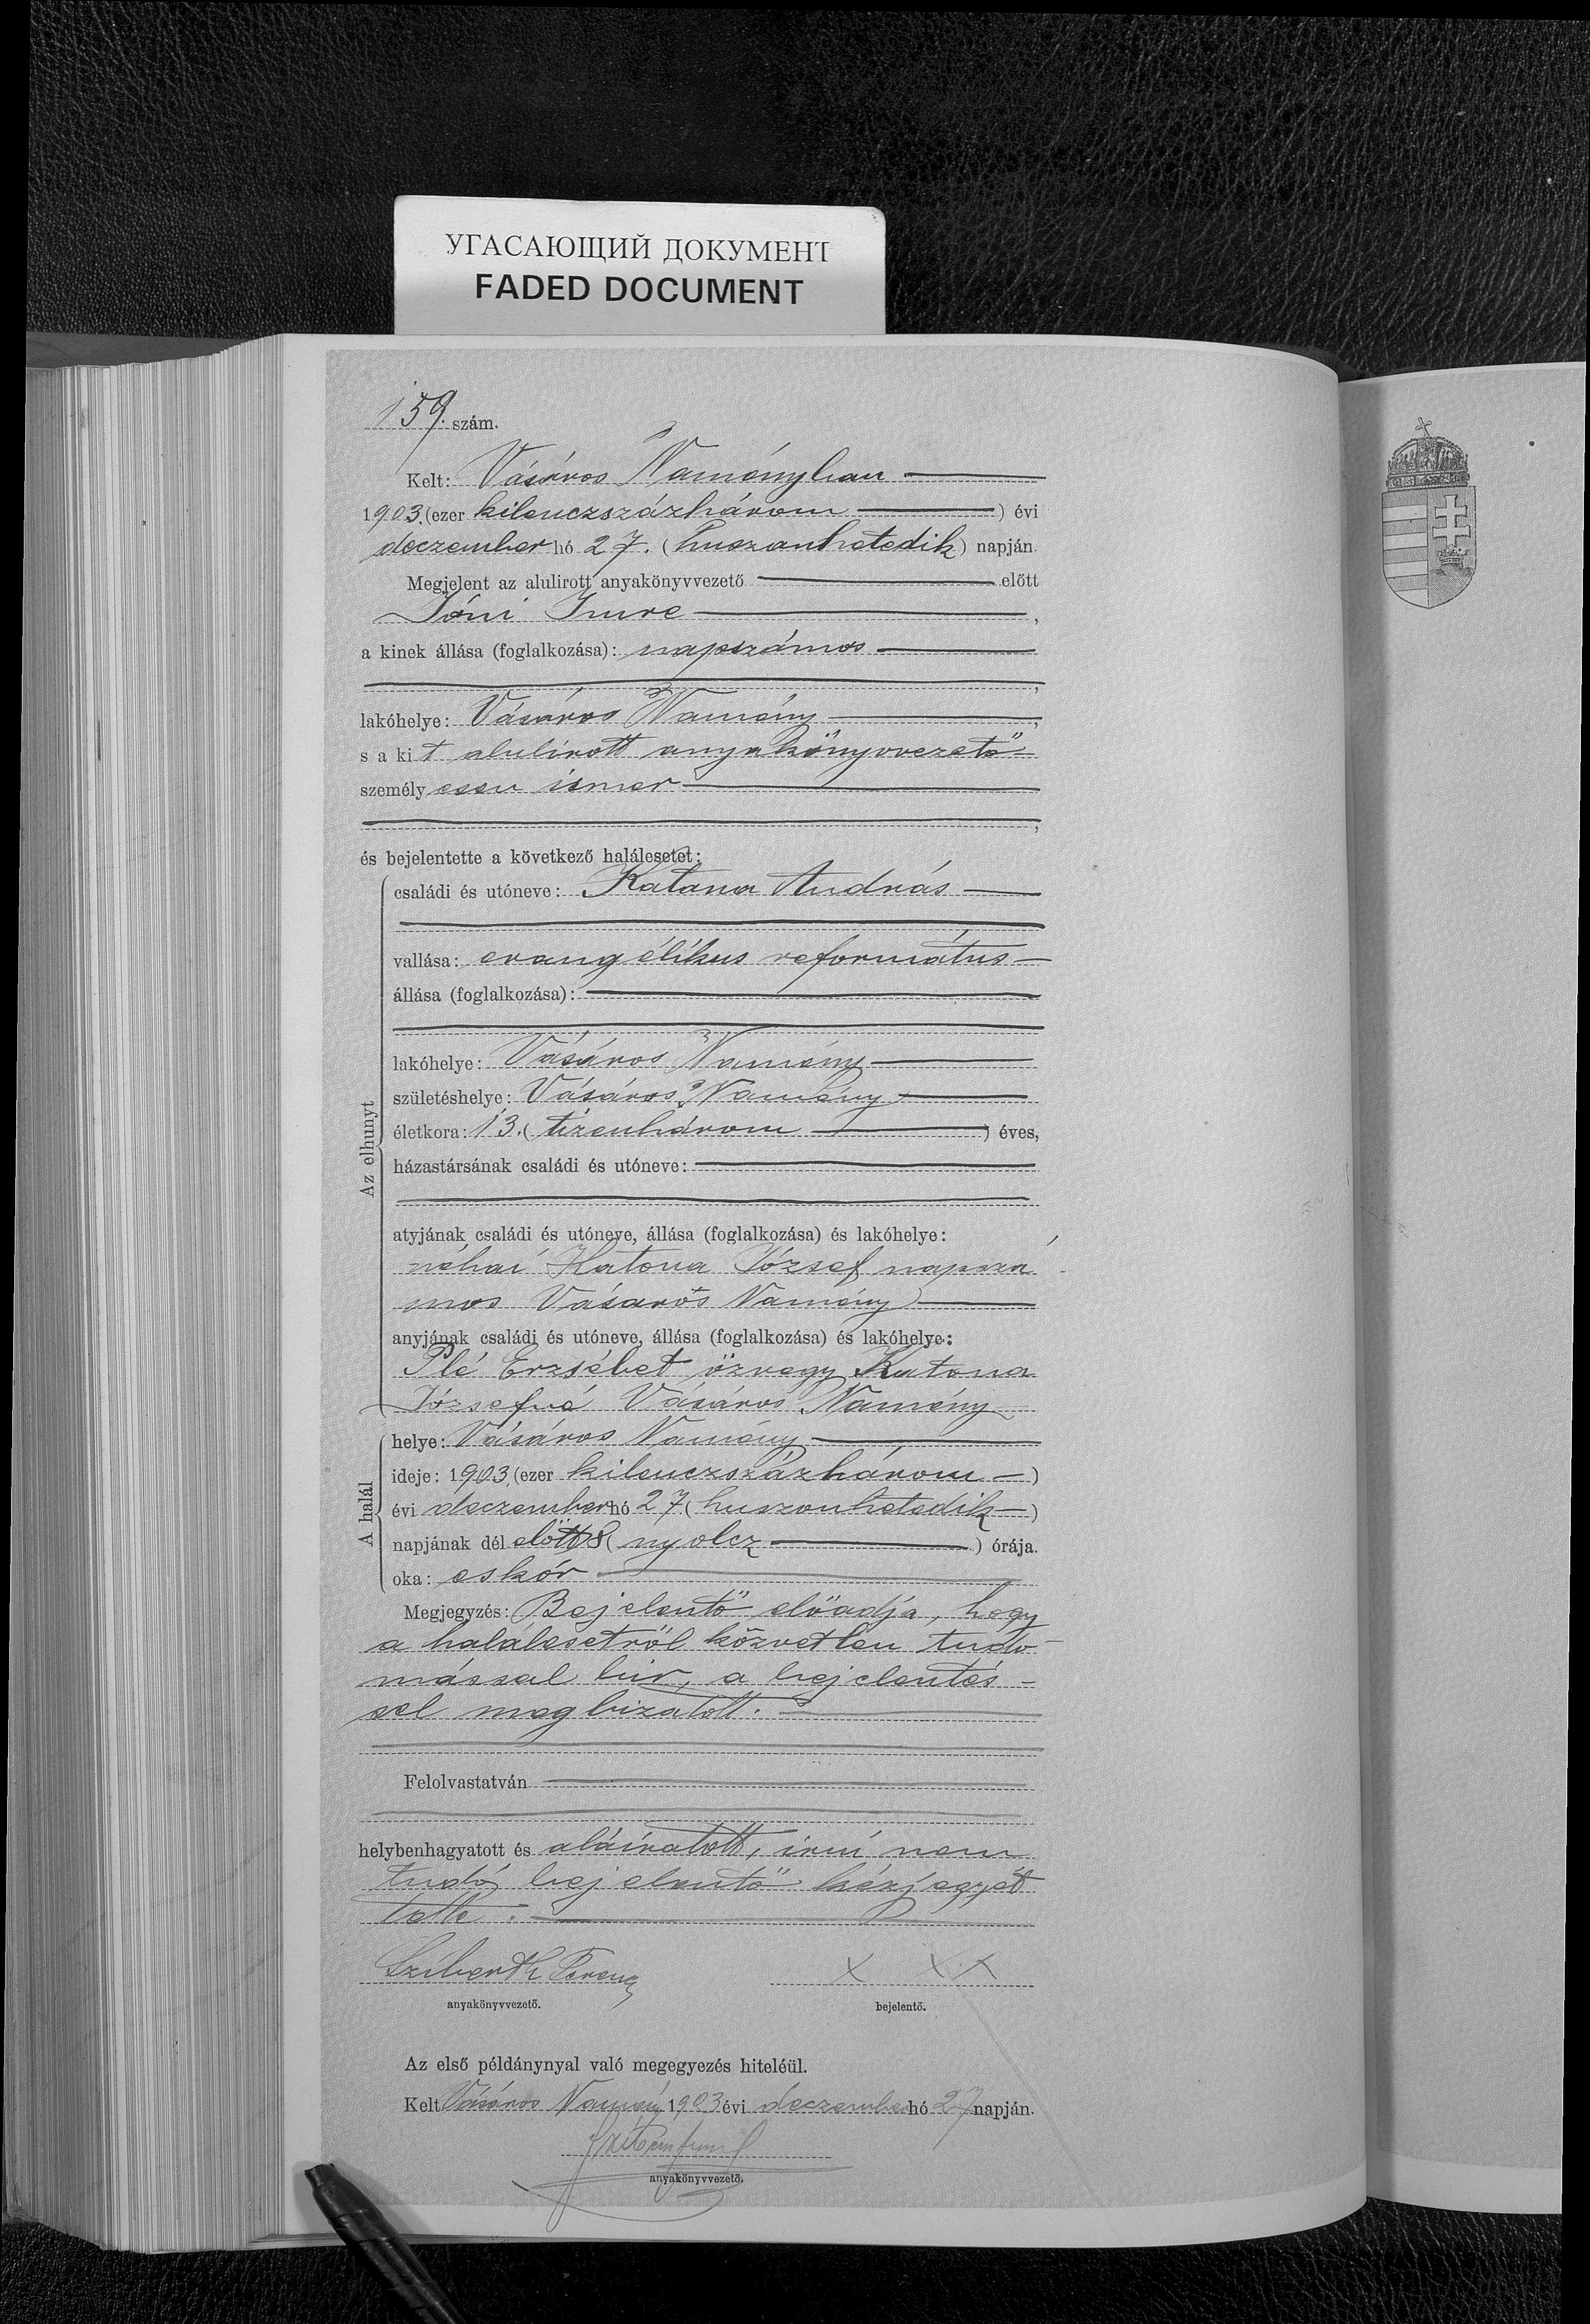 УГАСАЮЩИЙ ДОКУМЕНТ
FADED DOCUMENT
159. szám.
Kelt: Vásáros Naményban
1903. (ezer kilenczszázhárom ) évi
deczember hó 27. (huszonhetedik) napján.
Megjelent az alulirott anyakönyvvezető előtt
Imre ,
a kinek állása (foglalkozása): napszámos
,
lakóhelye: Vásáros Namény ,
s a kit alulirott anyakönyvvezető
személyesen ismer
,
és bejelentette a következő halálesetet:
Az elhunyt
családi és utóneve: Katona András
vallása: evangélikus református
állása (foglalkozása):
lakóhelye: Vásáros Namény
születéshelye: Vásáros Namény
életkora: 13. (tizenhárom ) éves,
házastársának családi és utóneve:
atyjának családi és utóneve, állása (foglalkozása) és lakóhelye:
néhai Katona József napszá
mos Vásáros Namény
anyjának családi és utóneve, állása (foglalkozása) és lakóhelye:
Plé Erzsébet özvegy Katona
Józsefné Vásáros Namény
A halál
helye: Vásáros Namény
ideje: 1903. (ezer kilenczszázhárom )
évi deczember hó 27 (huszonhetedik )
napjának dél előtt 8 (nyolcz ) órája.
oka: eskór
Megjegyzés: Bejelentő előadja, hogy
a halálesetről közvetlen tudo-
mással bir, a bejelentés-
sel megbizatott.
Felolvastatván
helybenhagyatott és aláíratott, irni nem
tudó bejelentő kézjegyét
tette.
Ferencz X X X
anyakönyvvezető. bejelentő.
Az első példánynyal való megegyezés hiteléül.
Kelt Vásáros Namény 1903 évi deczember hó 27 napján.
anyakönyvvezető.